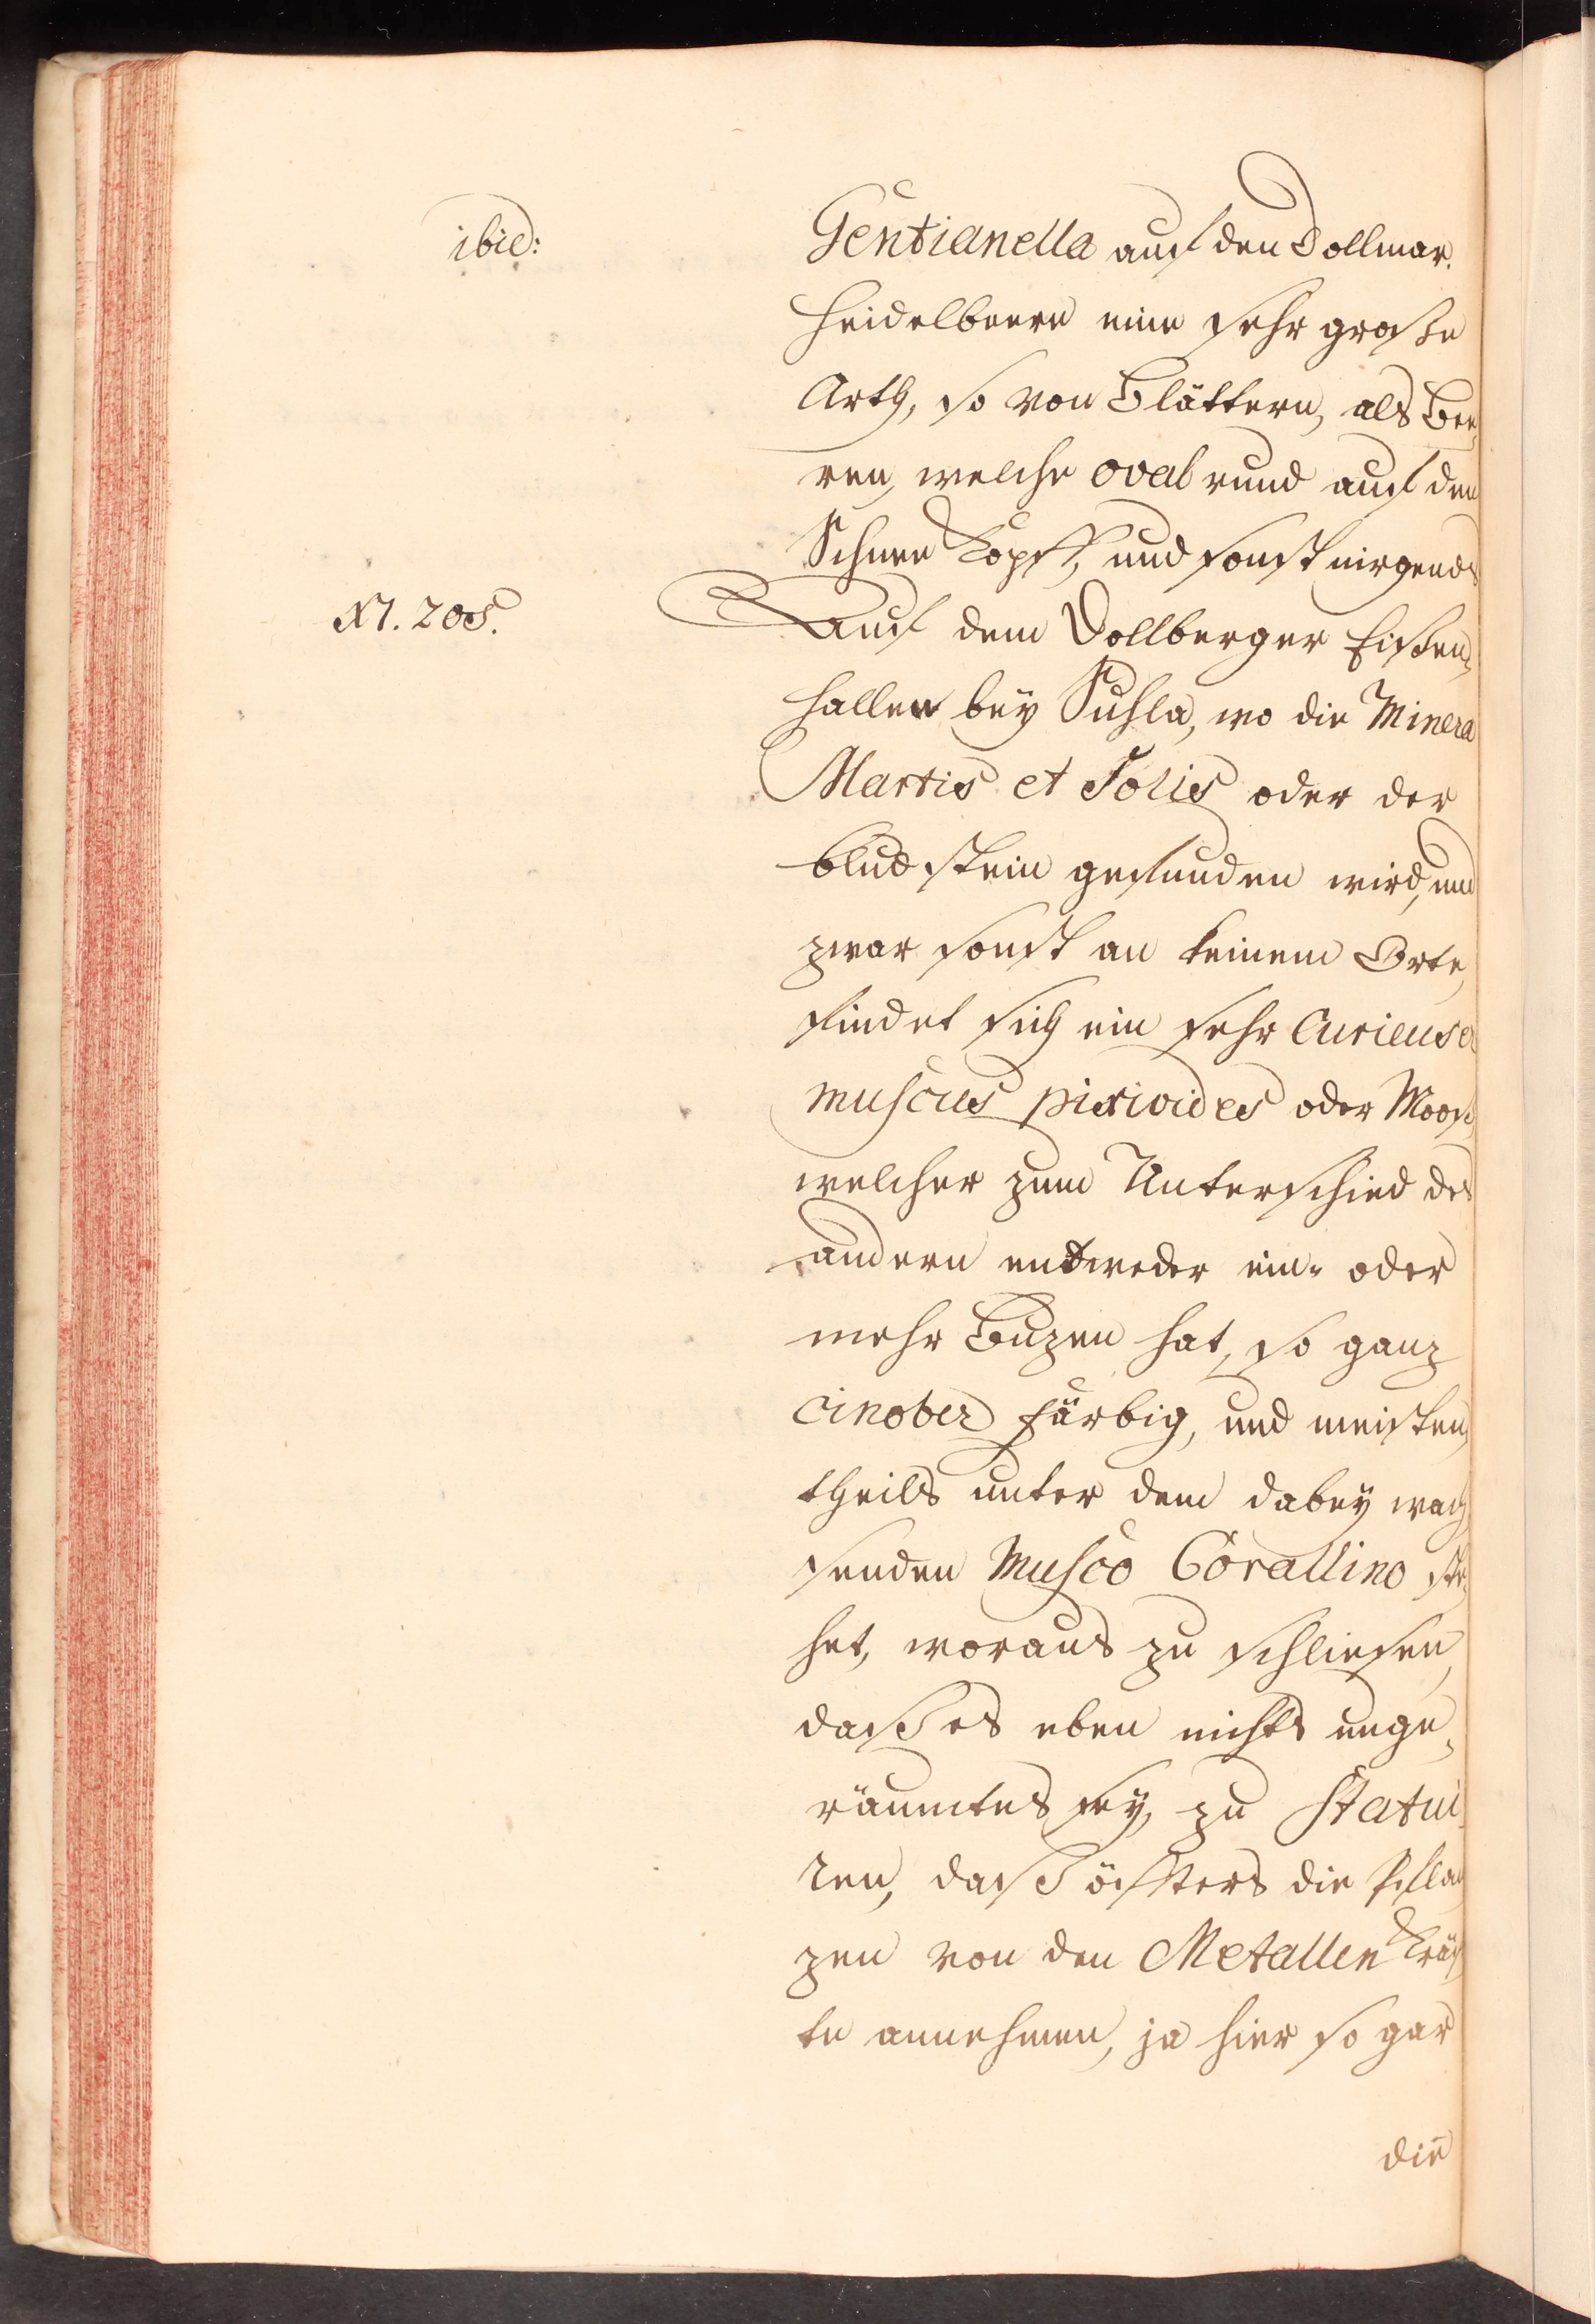 ibid:
Gentianella auf den Dollmar.
Heidelbeere eine sehr große
Arth, so von Blättern, als Bee,
ren, welche oval rund auf den
Schnee Kopff, und sonst nirgends
XI. 205.
Auf dem Dollberger Eißen,
hallen bey Suhla, wo die Minera
Martis et Solis oder der
bludstein gefunden wird, und
zwar sonst an keinem Orte,
findet sich ein sehr Curieuser
muscus pixioides oder Moos,
welcher zum Unterschied des
andern entweder ein- oder
mehr Buzen hat, so ganz
cinober färbig, und meisten,
theils unter dem dabey wach
senden Musco Corallino ste,
het, woraus zu schliesen,
daß es eben nichts unge,
räumtes sey, zu statui,
ren, daß öffters die Pflan
zen von den Metallen Kräf
te annehmen, ja hier so gar
die